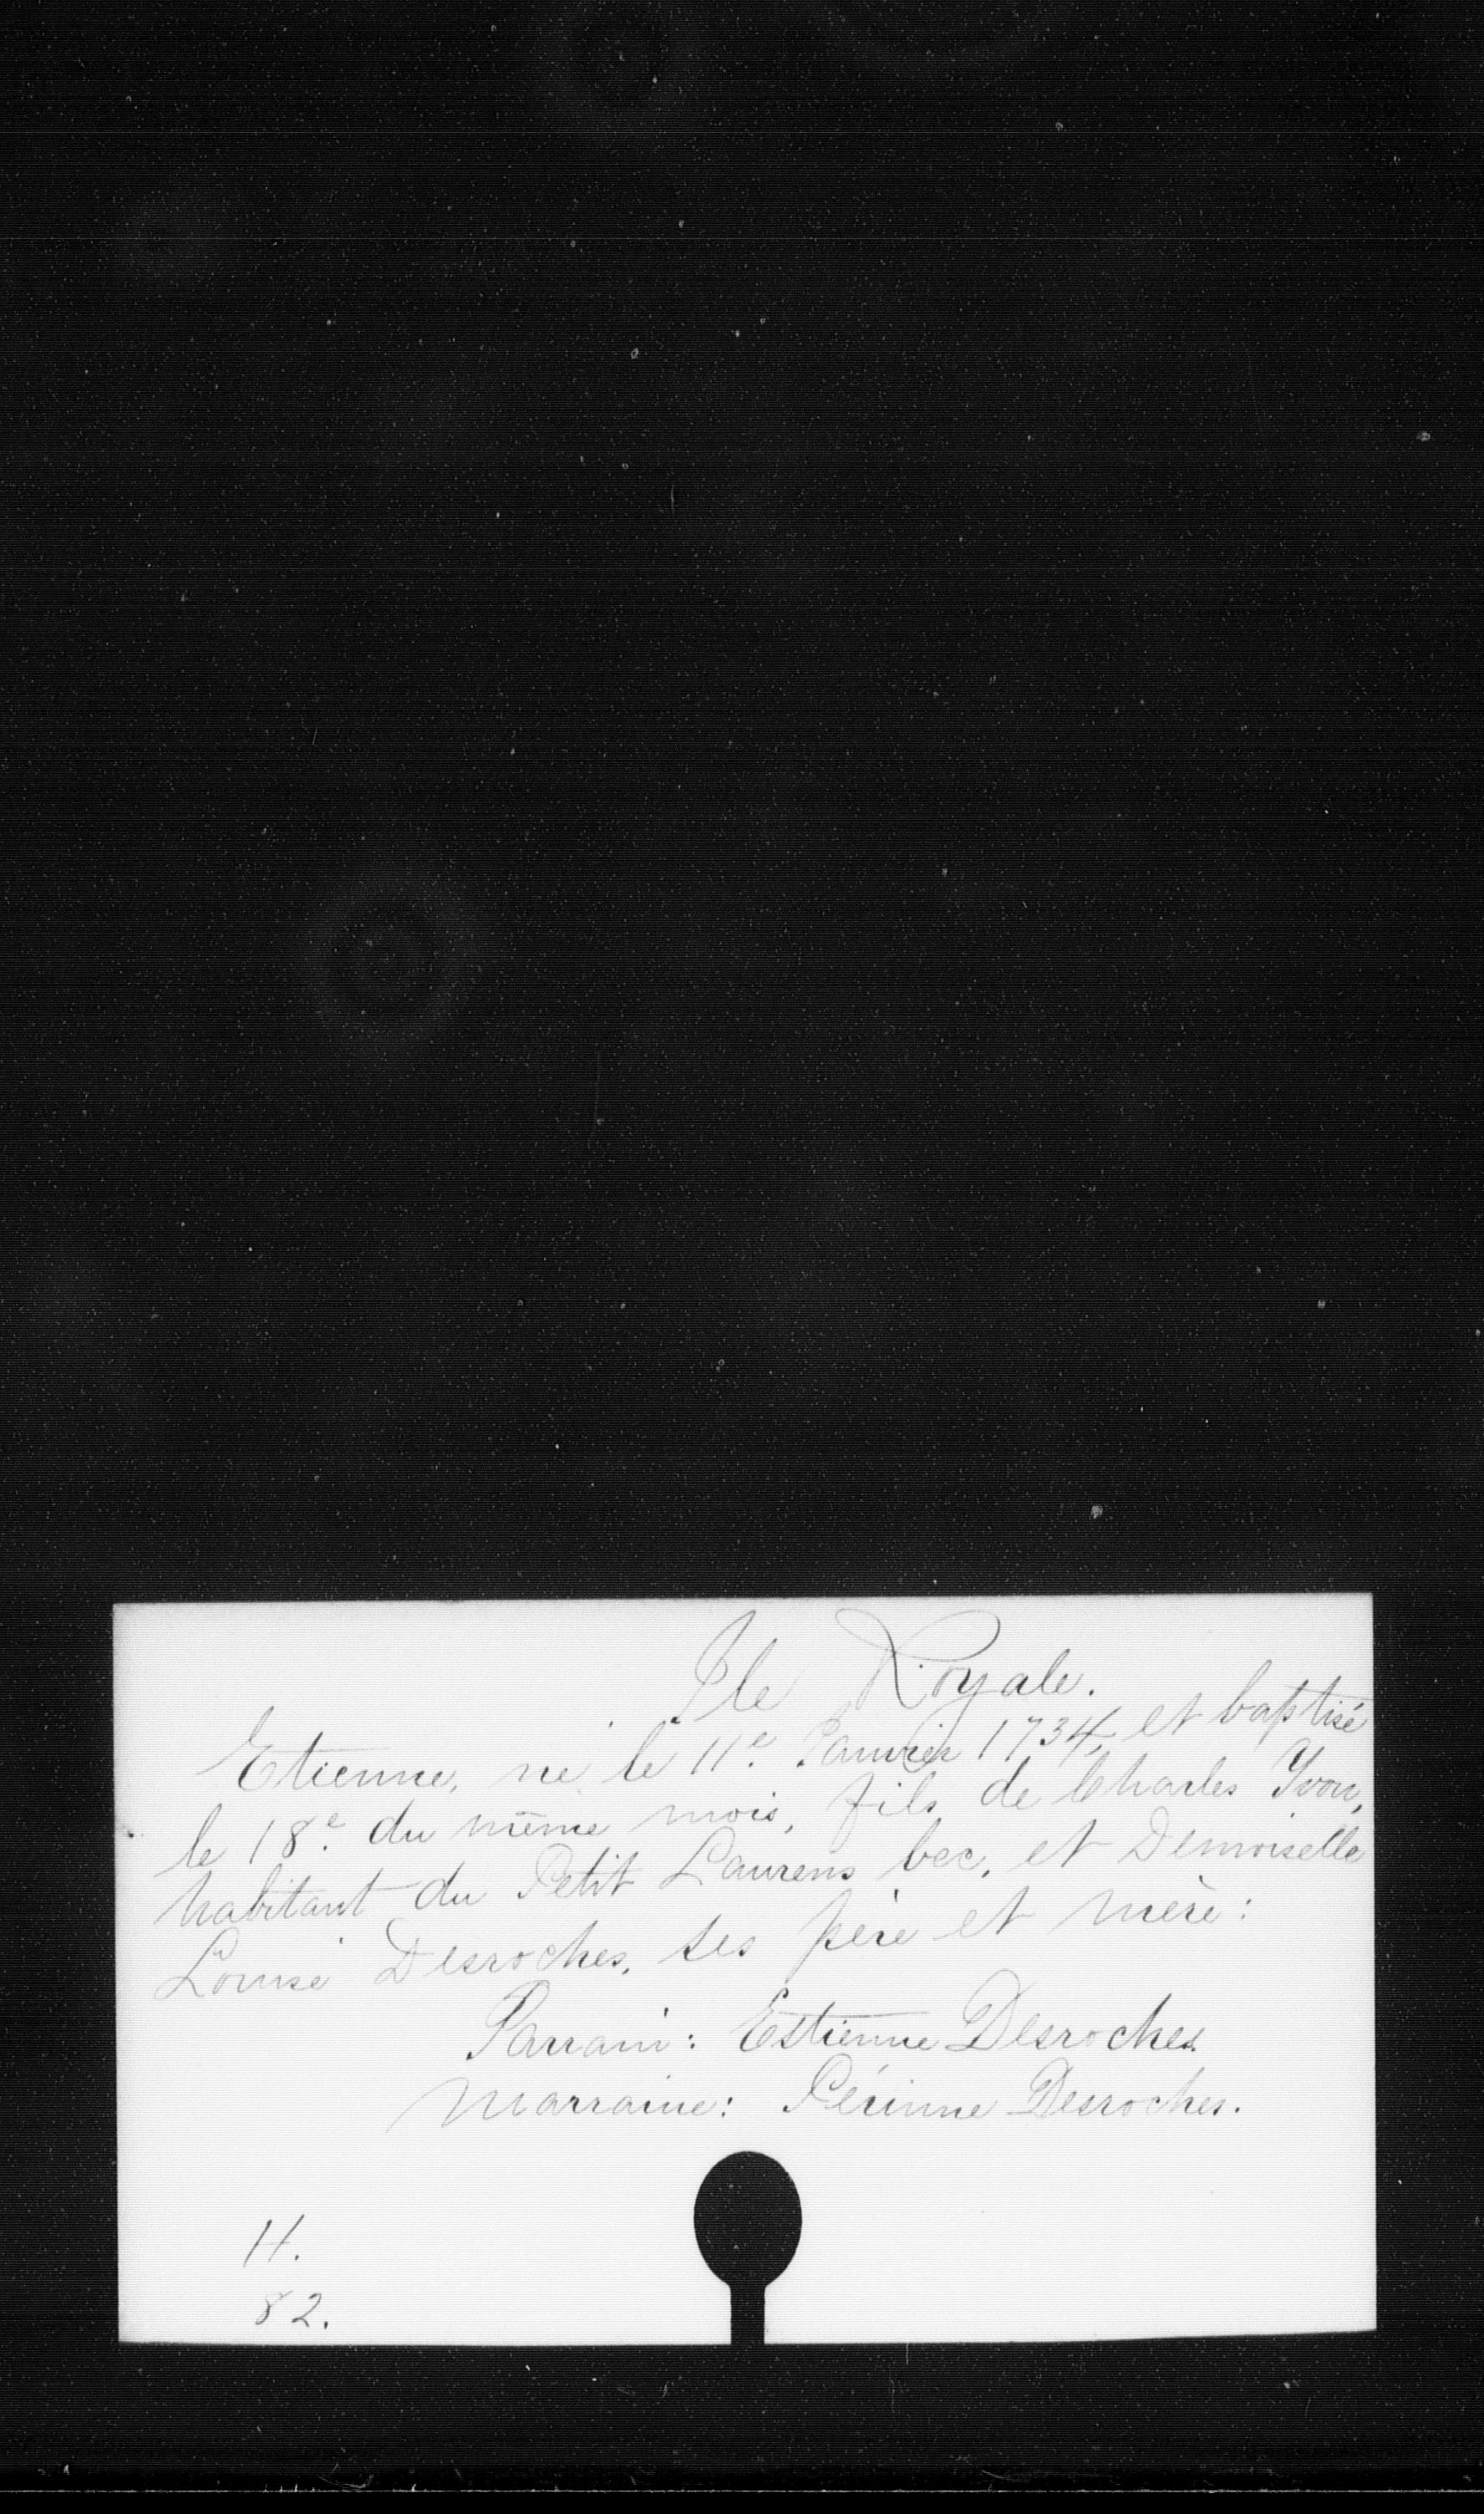 Ile Royale.
Etienne, né le 11e. Janvier 1734, et baptisé
le 18e. du même mois, fils de Charles Yvon,
habitant du Petit Laurens bec, et Demoiselle
Louise Desroches, ses père et mère:
Parrain: Estienne Desroches.
Marraine: Périnne Desroches.
11.
82.